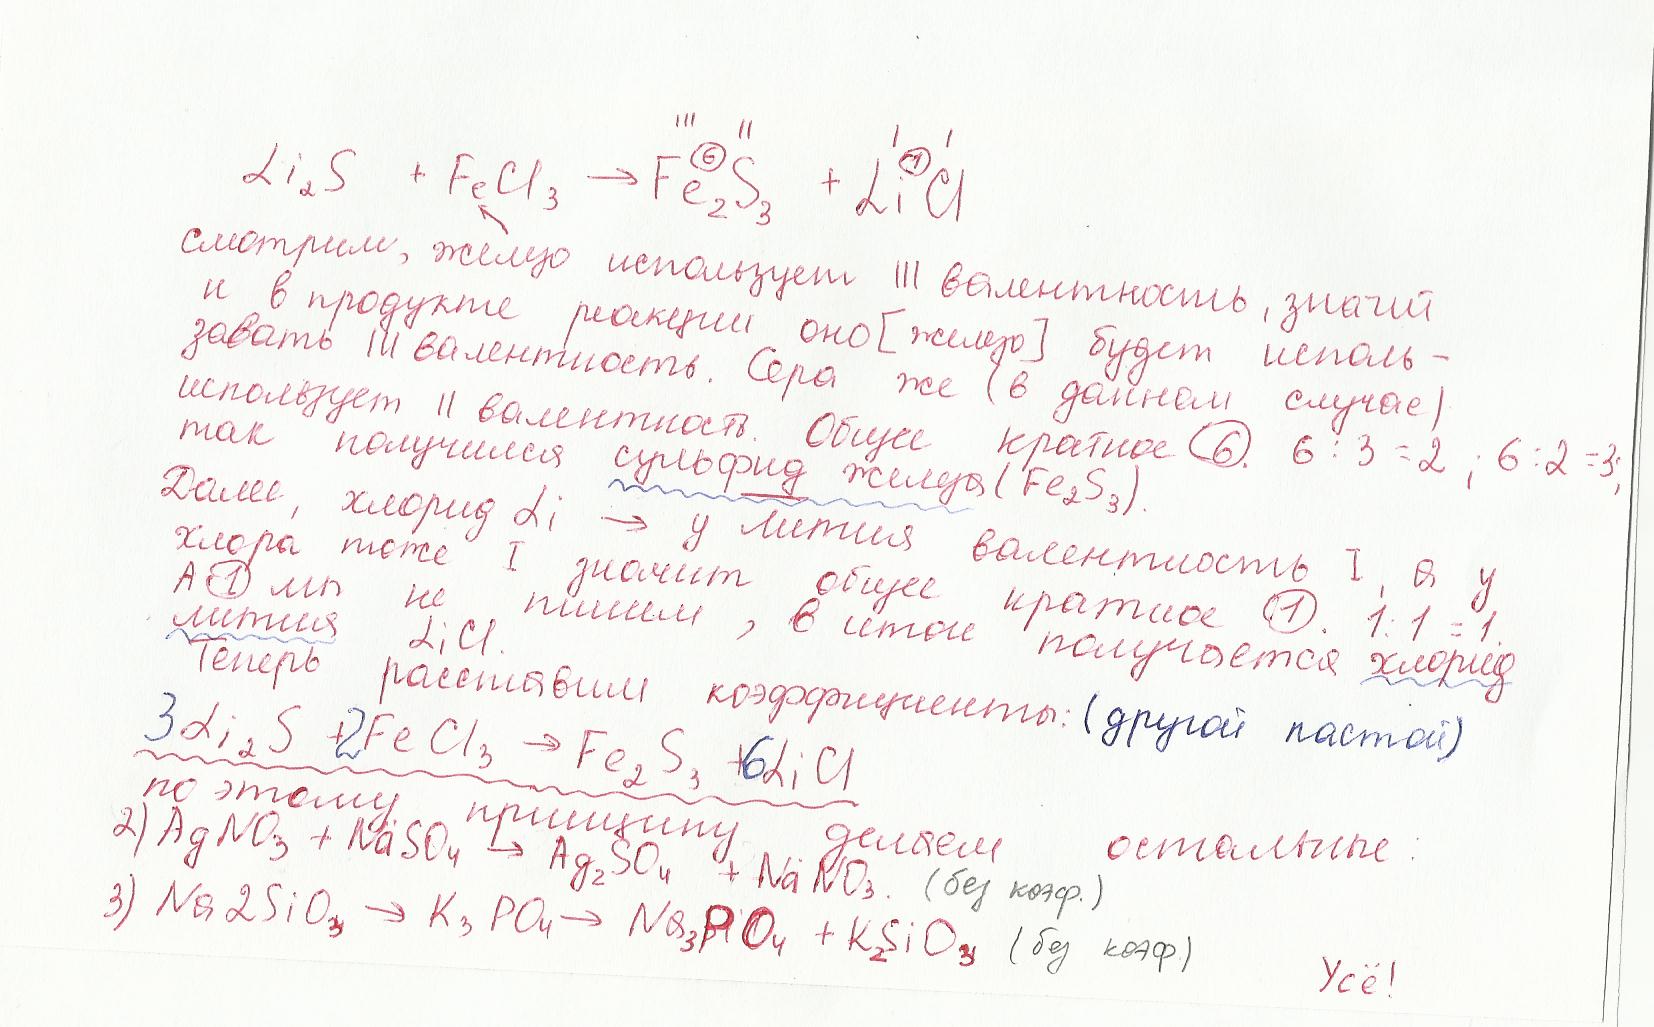 III II I I
Li₂S + FeCl₃ → Fe₂⑥S₃ + Li①Cl
смотрим, железо использует III валентность, значит
и в продукте реакции оно [железо] будет исполь-
зовать III валентность. Сера же (в данном случае)
использует II валентность. Общее кратное ⑥. 6:3=2; 6:2=3;
так получился сульфид железа (Fe₂S₃).
Далее, хлорид Li → у лития валентность I, а у
хлора тоже I значит общее кратное ①. 1:1=1.
А ① мы не пишем, в итоге получается хлорид
лития LiCl.
Теперь расставим коэффициенты: (другой пастой)
3Li₂S + 2FeCl₃ → Fe₂S₃ + 6LiCl
по этому принципу делаем остальные:
2) AgNO₃ + NaSO₄ → Ag₂SO₄ + NaNO₃. (без коэф.)
3) Na2SiO₃ → K₃PO₄ → Na₃PO₄ + K₂SiO₃ (без коэф.)
Усё!